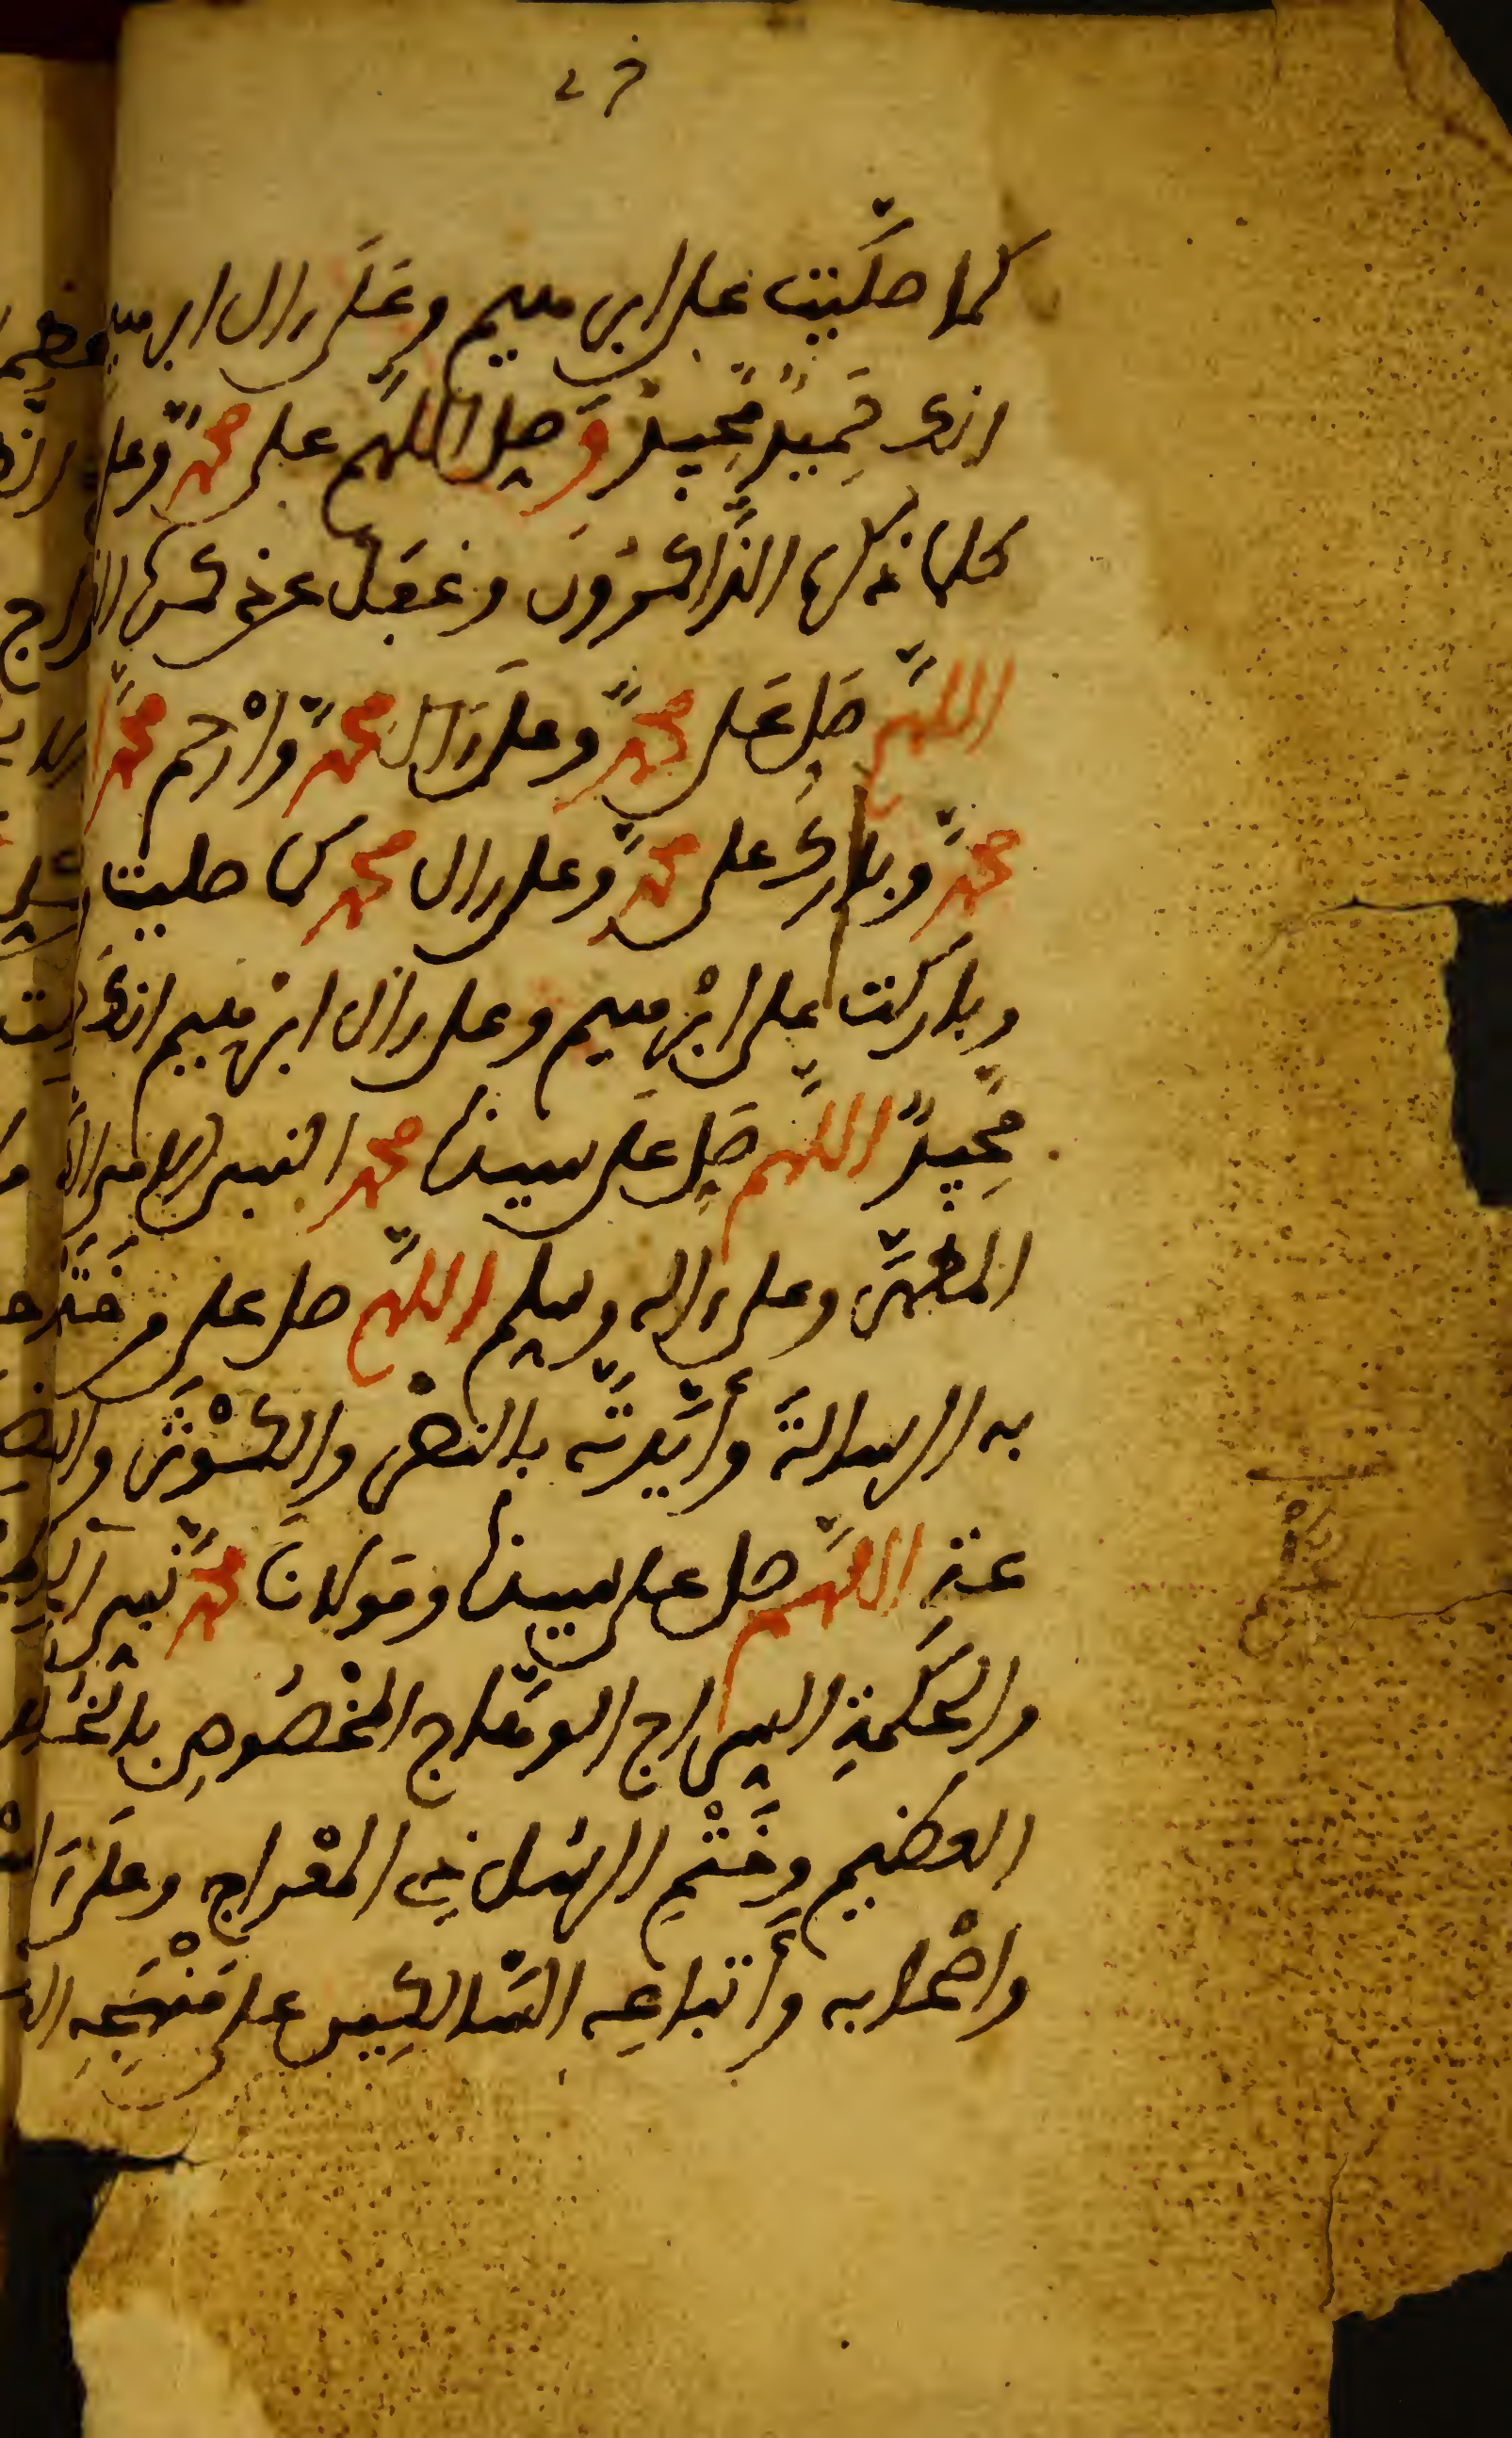 كما صَلَّيْتَ على ابرهيم وعَلَى ءال ابرهيم
انك حَمِيدٌ مَّجِيدٌ وَصَلِّ اللهم على محمدٍ وعلى
كلما ذكره الذَّاكرُونَ وغَفَلَ عن ذكره
اللهمَّ صَلِّ عَلى محمدٍ وعلى ءَال محمدٍ وارْحم محمدًا
محمدٍ وبارك على محمدٍ وعلى ءال محمد كما صليت
وباركت على ابْرهيم وعلى ءال ابرهيم انك
مَّجِيدٌ اللهم صَلِّ على سيدنا محمد النبي
المطهَّر وعلى ءاله وسلم اللهمَّ صل على من خَتَمْتَ
به الرسالةَ وأيَّدتَّه بالنصْر والكَوْثَر
اللهمَّ صل على سيدنا ومَولانَا محمدٍ نبي
والحكْمةِ السراج الوهَّاج المخْصُوصِ بالخُلق
العظيم وخَتْمِ الرسُل ذِي المعْراج وعلى ءَا
واصْحابه وأَتباعِه السَّالكِين على مَنْهَجِه